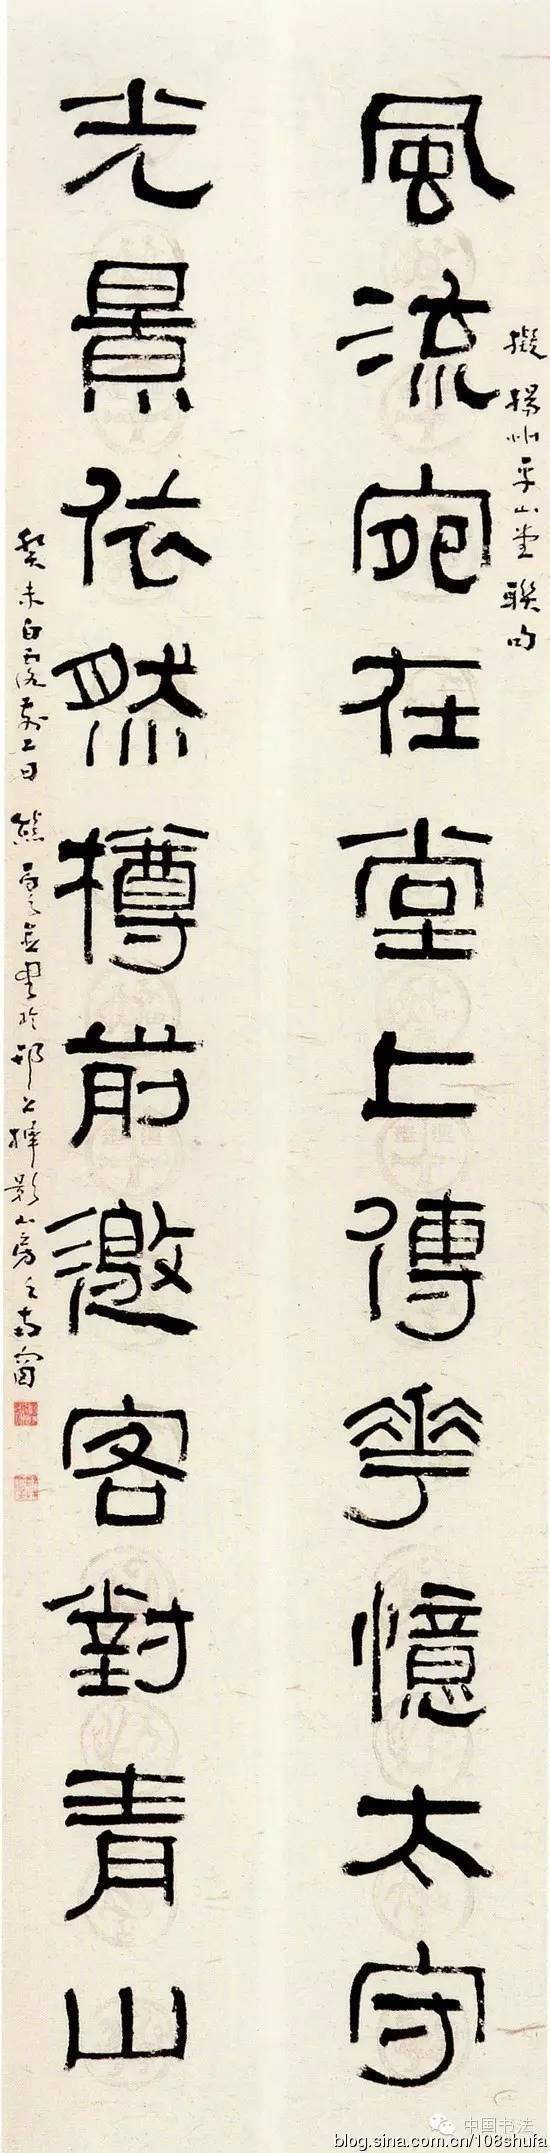 風流宛在堂上傳花憶太守
擬揚州平山堂聯句
光景依然樽前邀客對青山
癸未白露前日 熊百之書於邗上影山房之南窗
中国书法
blog.sina.com.cn/108shufa